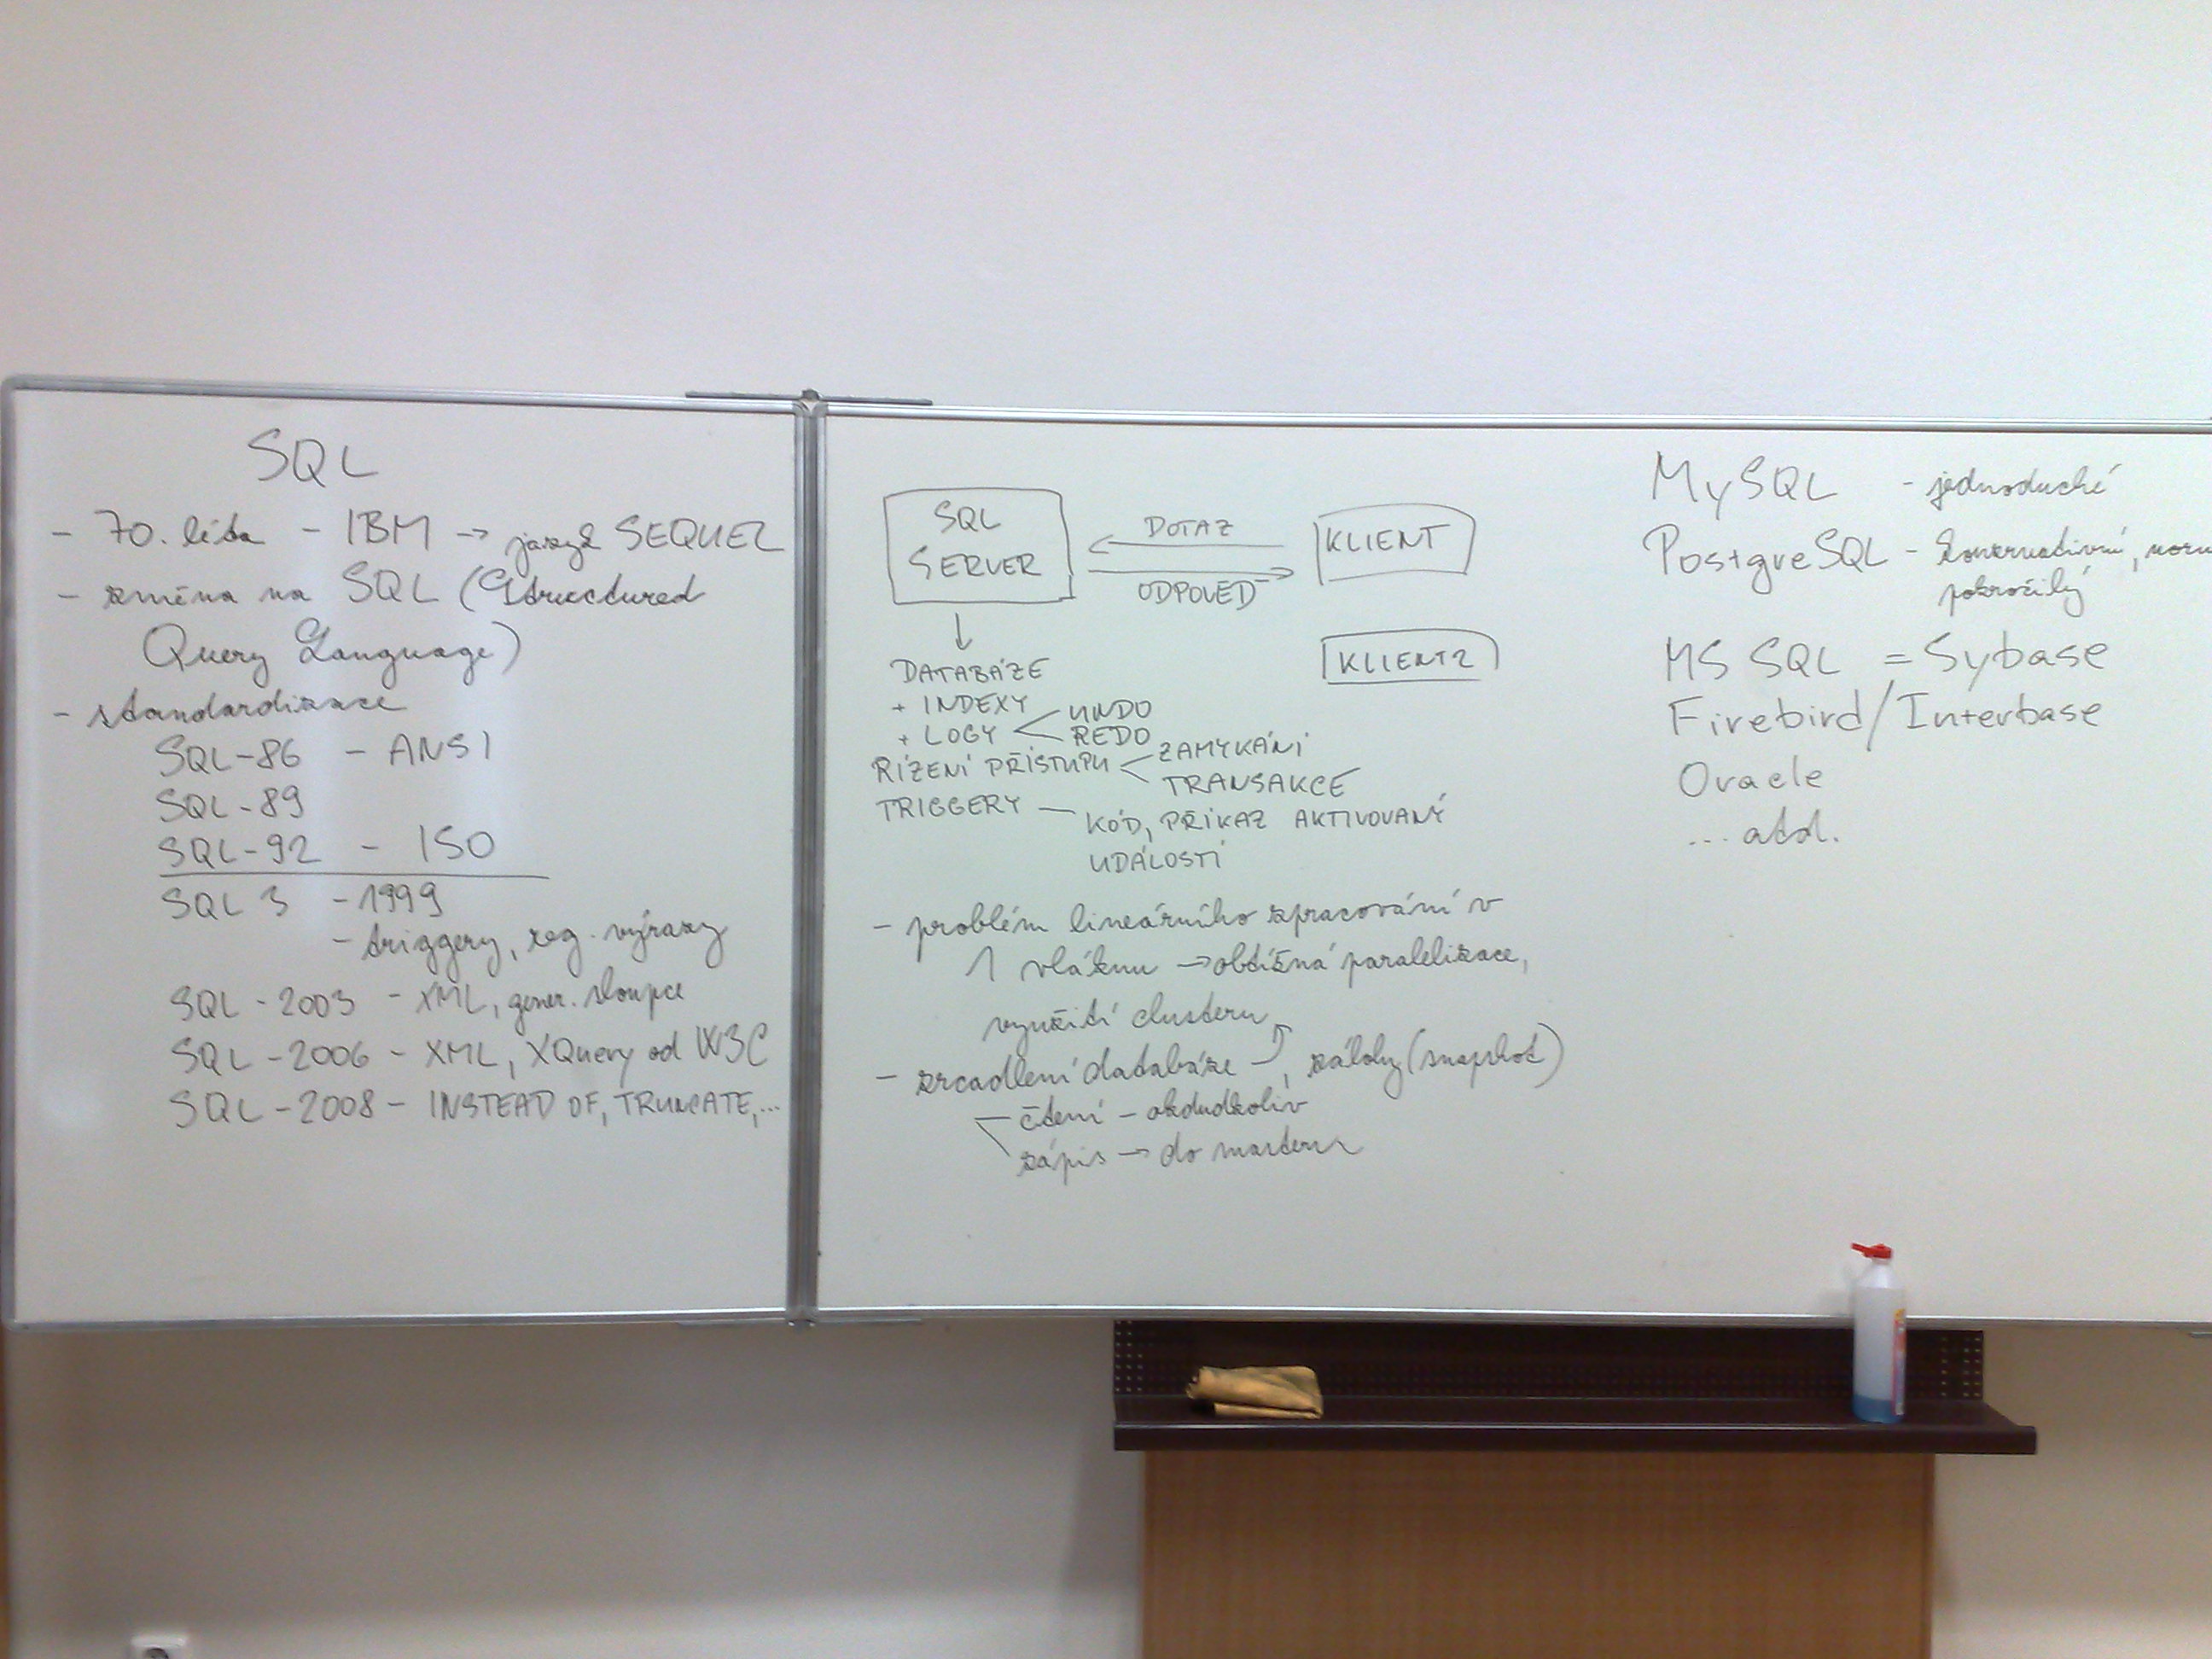 SQL
- 70. léta - IBM → jazyk SEQUEL
- změna na SQL (Structured
Query Language)
- standardizace
SQL-86 - ANSI
SQL-89
SQL-92 - ISO
SQL 3 - 1999
- triggery, reg. výrazy
SQL - 2003 - XML, gener. sloupce
SQL - 2006 - XML, XQuery od W3C
SQL - 2008 - INSTEAD OF, TRUNCATE,...
SQL
SERVER
DOTAZ
ODPOVĚĎ
KLIENT
KLIENT2
DATABÁZE
+ INDEXY
+ LOGY
UNDO
REDO
ŘÍZENÍ PŘÍSTUPU
ZAMYKÁNÍ
TRANSAKCE
TRIGGERY — KÓD, PŘÍKAZ AKTIVOVANÝ
UDÁLOSTÍ
- problém lineárního zpracování v
1 vláknu → obtížná paralelizace,
využití clusteru
- zrcadlení databáze -, zálohy (snapshot)
čtení - okudkoliv
zápis → do masteru
MySQL - jednoduché
PostgreSQL - konzervativní,
pokročilý
MS SQL = Sybase
Firebird/Interbase
Oracle
... atd.